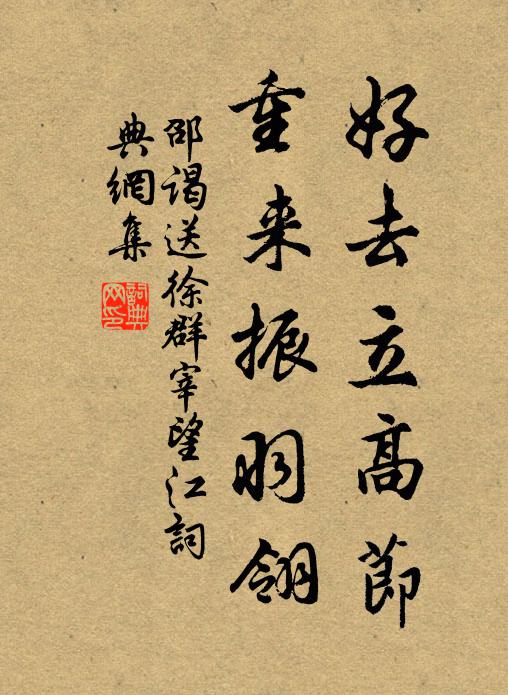 好去立高節
重来振羽翎
邵謁送徐群宰望江詞
典網集
詞典網印